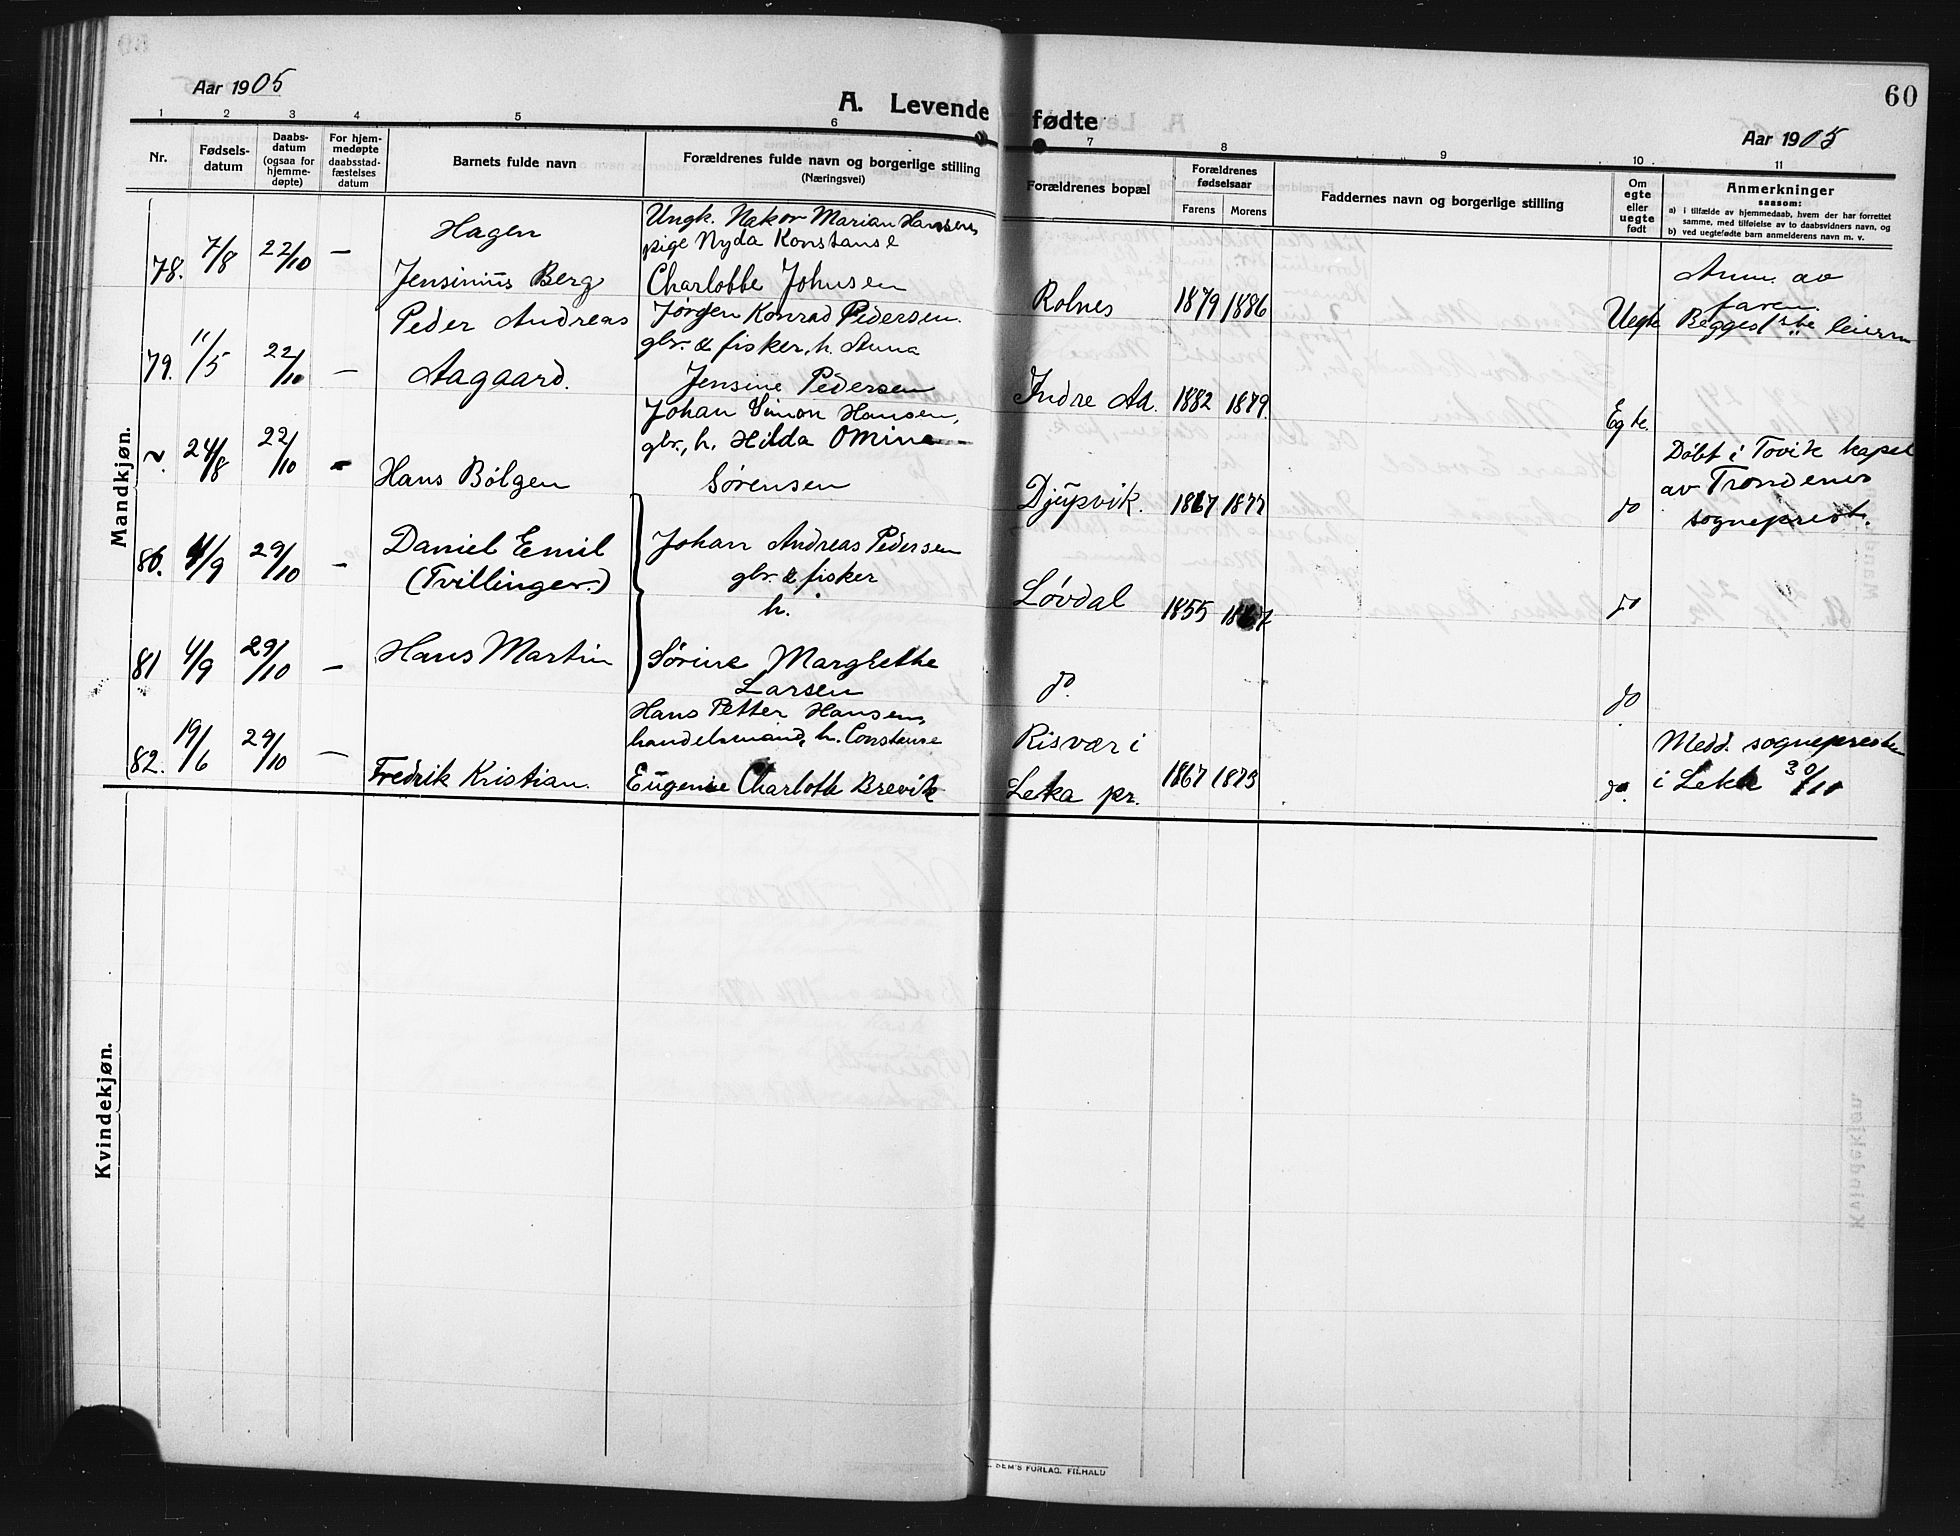 60
Aar 1905
A. Levendefødte
Aar 1905
1 2 3 4 5 6 7 8 9 10 11
Nr.
Fødsels-
datum
Daabs-
datum
(ogsaa for
hjemme-
døpte)
For hjem-
medøpte
daabsstad-
fæstelses
datum
Barnets fulde navn
Forældrenes fulde navn og borgerlige stilling
(Næringsvei)
Forældrenes bopæl
Forældrenes
fødselsaar
Farens Morens
Faddernes navn og borgerlige stilling
Om
egte
eller
uegte
født
Anmerkninger
saasom:
a) i tilfælde av hjemmedaab, hvem der har forrettet
samme, med tilføielse av to daabsvidners navn, og
b) ved uegtefødte barn anmelderens navn m. v.
Mandkjøn.
78. 7/8 22/10 —
Hagen
Jensinius Berg
Ungk. Nakor Marian Hansen,
pige Nyda Konstanse
Charlotte Johnsen
Rolnes 1879 1886 Uegte
Anm. av
faren.
Begges 1ste leierm
79. 11/5 22/10 —
Peder Andreas
Aagaard.
Jørgen Konrad Pedersen.
gbr. & fisker, h. Anna
Jensine Pedersen
Indre Aa. 1882 1879. Egte.
~. 24/8 22/10 -
Hans Bølgen
Johan Simon Hansen,
gbr., h. Hilda Omine
Sørensen
Djupvik. 1867 1877 do
Døbt i Tovik kapel
av Trondenes
sogneprest.
80. 4/9 29/10 -
Daniel Emil
(Tvillinger.)
Johan Andreas Pedersen
gbr. & fisker
h.
Løvdal 1855 1867 do
81 4/9 29/10 —
Hans Martin
Sørine Margrethe
Larsen
do. do
82. 19/6 29/10 —
Fredrik Kristian.
Hans Petter Hansen,
handelsmand, h. Constanse
Eugenie Charlotte Brevik
Risvær i
Leka pr. 1867 1873 do.
Medd. sognepresten
i Leka 30/10
Kvindekjøn.
FORLAG. FILHALD